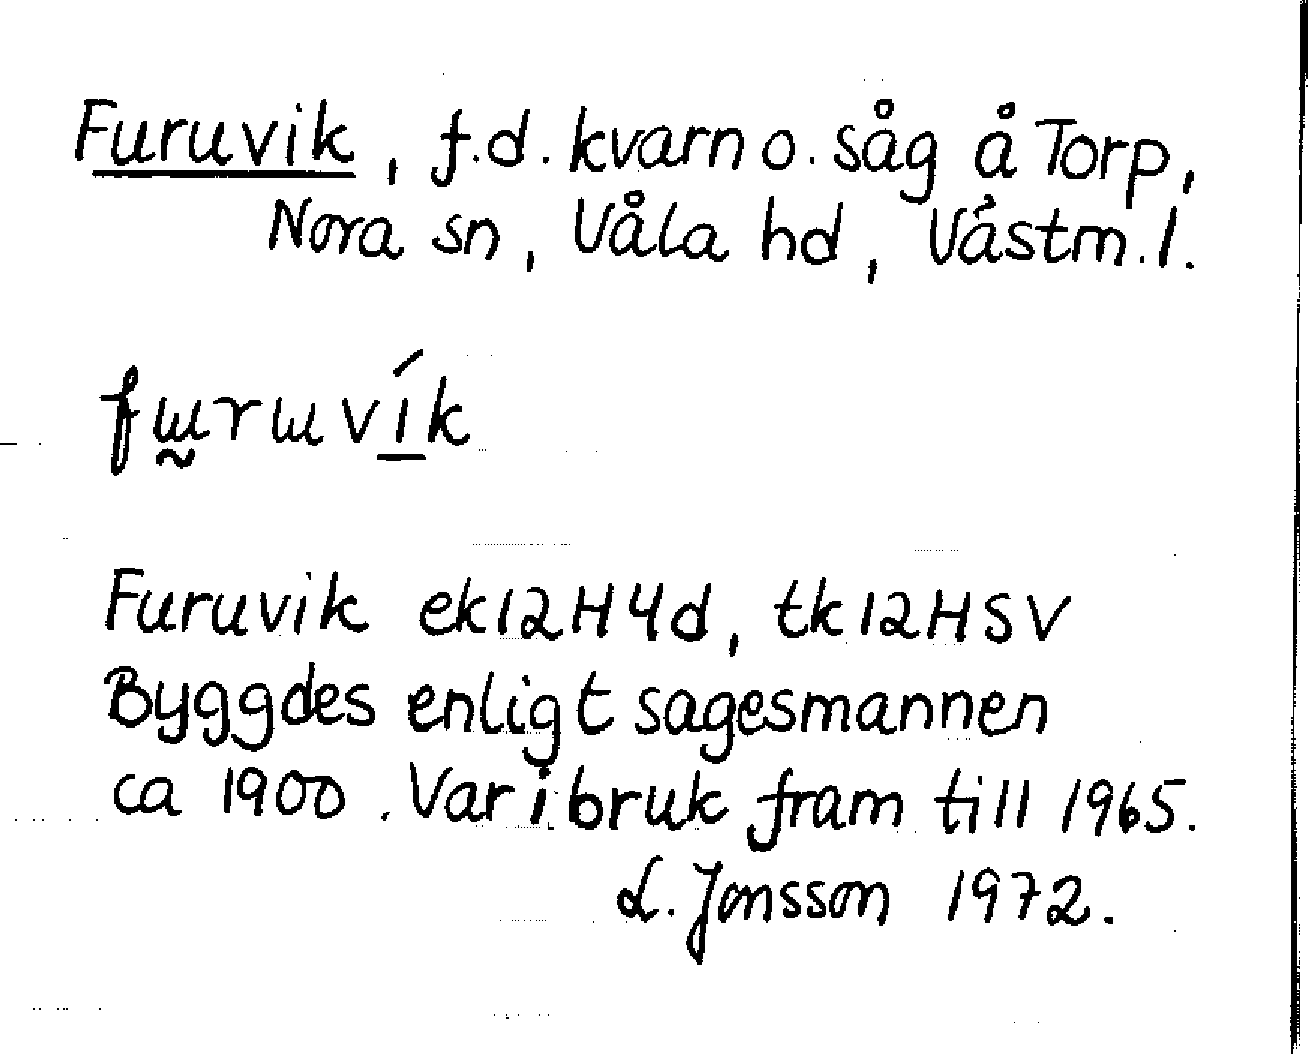 Furuvik, f.d. kvarn o. såg å Torp,
Nora sn, Våla hd, Västm. l.
fɯ̰rɯví̱k
Furuvik ek12H4d, tk12HSV
Byggdes enligt sagesmannen
ca 1900. Var i bruk fram till 1965.
L. Jonsson 1972.